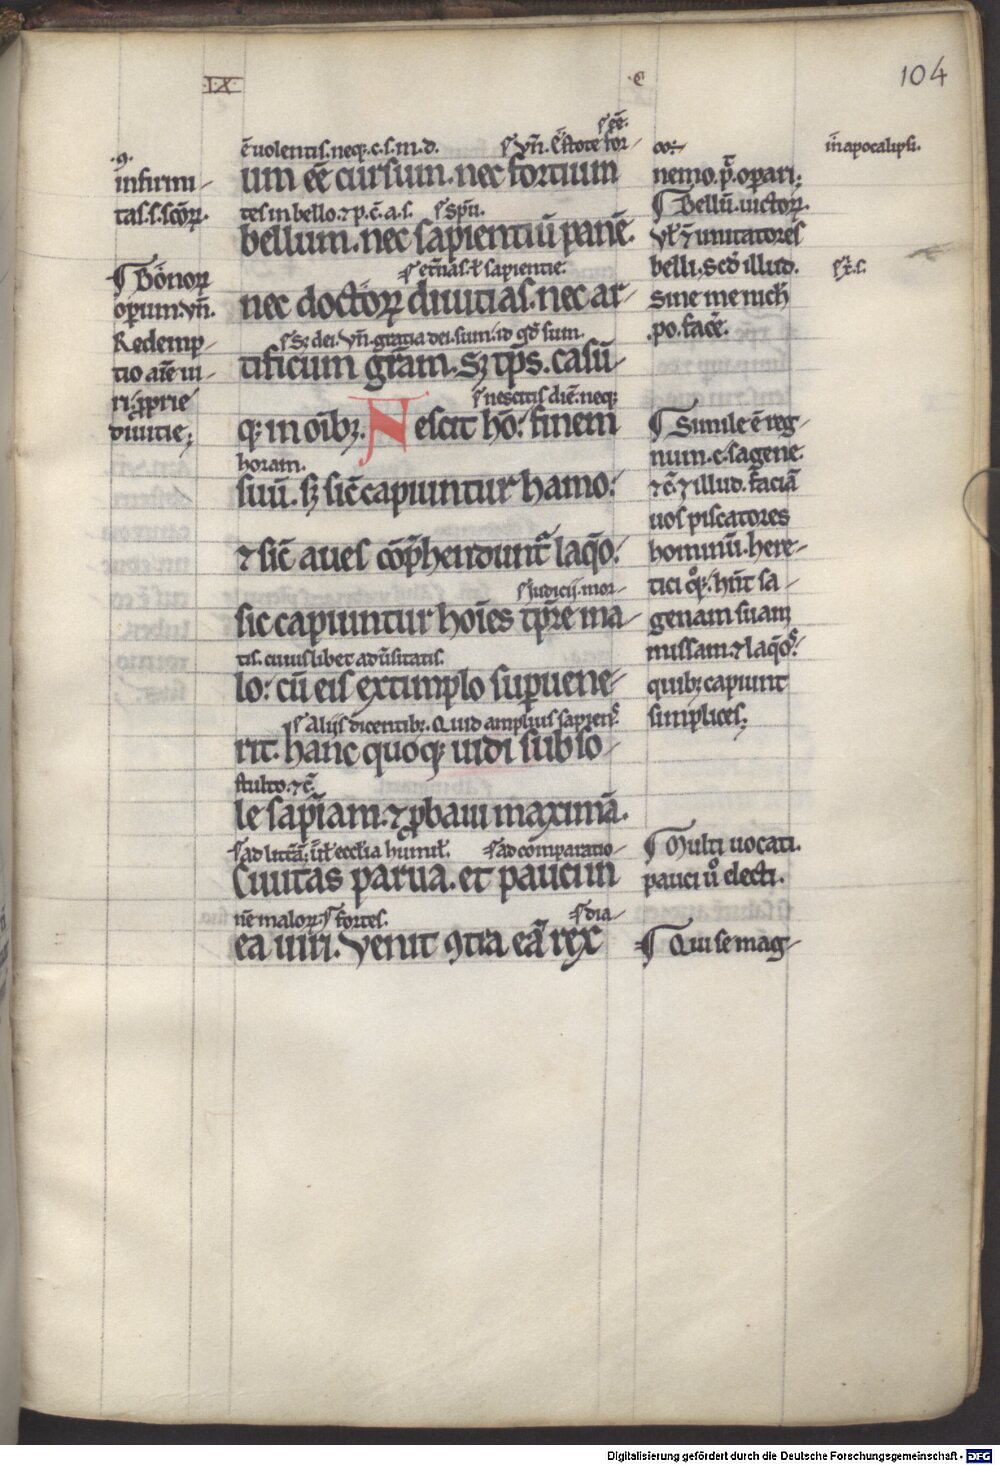 .IX.
.c.
104
.9.
infirmi-
tas.s.scōꝝ.
¶ Bonoꝝ
operum.vñ.
Redemp-
tio aīe ui-
ri. ꝓprie
diuitie;
ē uolentis.neqꝫ.c.s.m.d.
s. vñ. Estote for-
s. eē.
um eē cursum. nec fortium
tes in bello.⁊ p.c̄.a.s. s. spū.
bellum. nec sapientiū panē.
s. et̄nas. ł sapientie.
nec doctoꝝ diuitias. nec ar-
s. Sꝫ dei. vñ. gratia dei. sum. id qđ sum.
tificum gr̄am. Sꝫ tp̄s. casū-
s. nescitis diē.neqꝫ
qꝫ in oībꝫ. Nescit hō: finem
horam.
suū. sꝫ sic̄ capiuntur hamo:
⁊ sic̄ aues cōp̄hendunt᷑ laq̄o:
s. iudicij. mor-
sic capiuntur hoīes tp̄re ma-
tis. cuiuslibet adu̓sitatis.
lo: cū eis extimplo superuene-
s. Alijs dicentibꝫ. Quid amplius sapiens
rit. hanc quoqꝫ uidi sub so-
stulto.⁊c̄.
le sapīam. ⁊ ꝓbaui maximā.
s. ad litt̄am: ił ecclīa humił. s. ad comparatio-
Ciuitas parua. et pauci in
nē maloꝝ. s. fortes. s. dia-
ea uiri. Venit ꝯtra eā rex
co:-
nemo. p̄t. operari;
¶ Bellū. uictoꝝ.
vł ē imitatores
belli. scđ illud.
sine me nich̄
.po. facē.
¶ Simile ē reg-
num.c. sagene.
⁊c̄. ⁊ illud. faciā
uos piscatores
hominū. here-
tici qͦqꝫ. hn̄t sa-
genam suam
missam. ⁊ laq̄os:
quibꝫ capiunt
simplices;
¶ Multi uocati.
pauci uͦ electi.
¶ Qui se mag-
in apocalipsi.
Digitalisierung gefördert durch die Deutsche Forschungsgemeinschaft - DFG